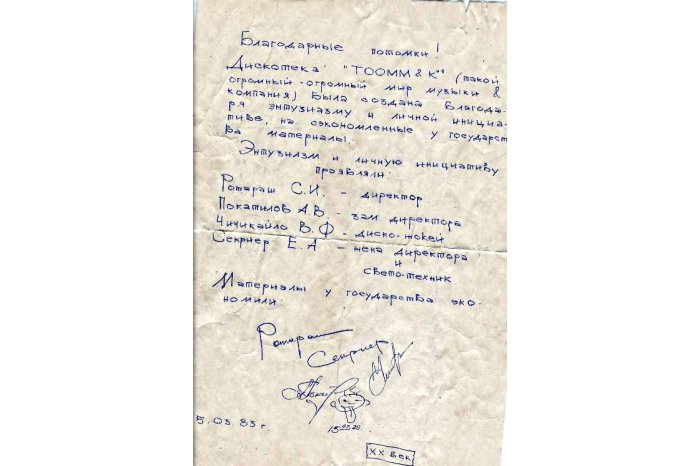 Благодарные потомки!
Дискотека "ТООММ & К°" (такой
огромный-огромный мир музыки &
компания) была создана благода-
ря энтузиазму и личной инициа-
тиве, на сэкономленные у государст-
ва материалы!
Энтузиазм и личную инициативу
проявляли:
Ротараш С.И. - директор
Покатилов А.В. - зам директора
Чичикайло В.Ф - диско-жокей
Секриер Е.А - жена директора
и
свето-техник
Материалы у государства эко-
номили:
Ротараш
Секриер
5.03.83г.
XX век